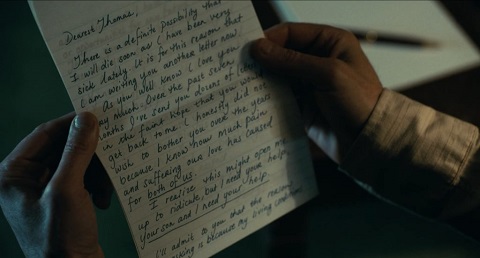 Dearest Thomas,
There is a definite possibility that
I will die soon as I have been very
sick lately. it is for this reason that
I am writing you another letter now.
As you well know I love you
very much. Over the past seven
months I've sent you dozens of letters
in the faint hope that you would
get back to me. I honestly did not
wish to bother you over the years
because I know how much pain
and suffering our love has caused
for both of us.
I realize this might open me
up to ridicule, but I need your help.
Your son and I need your help.
I'll admit to you that the reason
is because my living